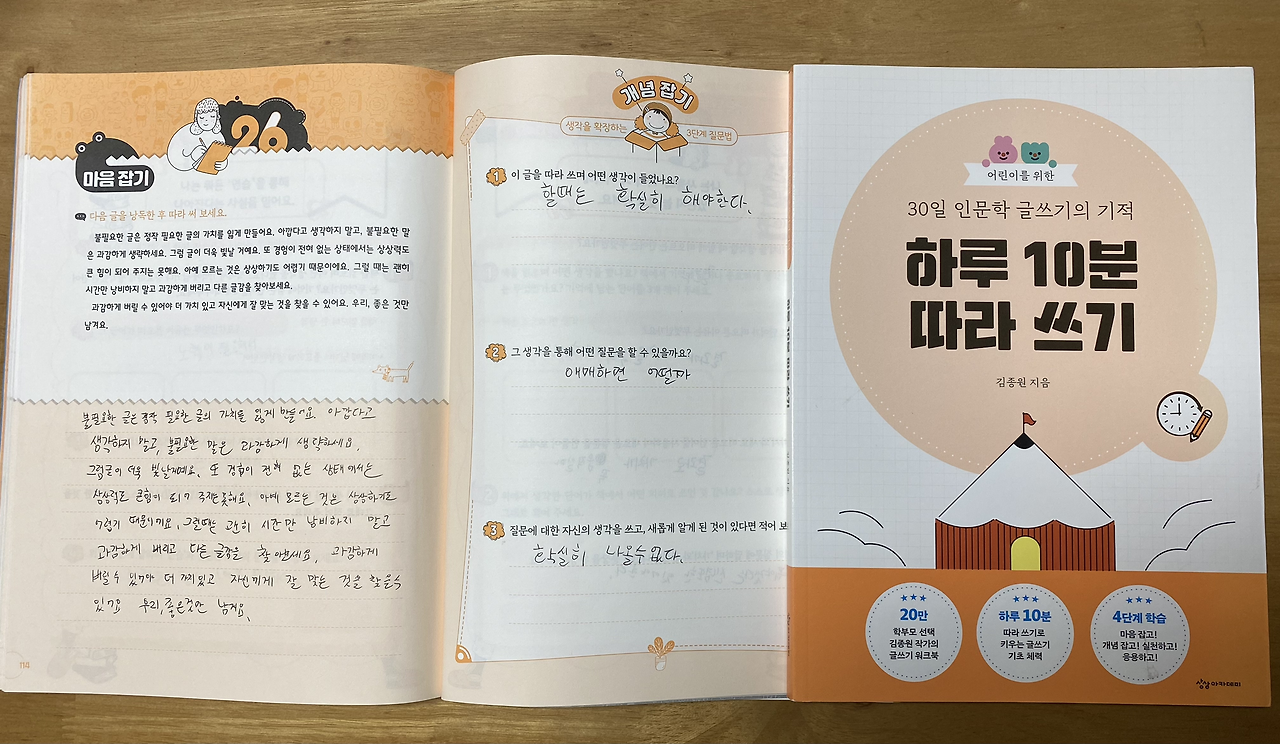 26
마음 잡기
다음 글을 낭독한 후 따라 써 보세요.
불필요한 글은 정작 필요한 글의 가치를 잃게 만들어요. 아깝다고 생각하지 말고, 불필요한 말
은 과감하게 생략하세요. 그럼 글이 더욱 빛날 거예요. 또 경험이 전혀 없는 상태에서는 상상력도
큰 힘이 되어 주지는 못해요. 아예 모르는 것은 상상하기도 어렵기 때문이에요. 그럴 때는 괜히
시간만 낭비하지 말고 과감하게 버리고 다른 글감을 찾아보세요.
과감하게 버릴 수 있어야 더 가치 있고 자신에게 잘 맞는 것을 찾을 수 있어요. 우리, 좋은 것만
남겨요.
불필요한 글은 정작 필요한 글의 가치를 잃게 만들어요 아깝다고
생각하지 말고, 불필요한 말은 과감하게 생략하세요.
그럼글이 더욱 빛날거예요. 또 경험이 전혀 없는 상태에서는
상상력도 큰힘이 되어 주진못해요. 아예 모르는 것은 상상하기도
어렵기 때문이에요. 그럴때는 괜히 시간만 낭비하지 말고
과감하게 버리고 다른 글감을 찾아보세요. 과감하게
버릴수 있어야 더 가치있고 자신에게 잘 맞는 것을 찾을수
있어요 우리, 좋은것만 남겨요.
114
개념 잡기
생각을 확장하는 3단계 질문법
1 이 글을 따라 쓰며 어떤 생각이 들었나요?
할때는 확실히 해야한다.
2 그 생각을 통해 어떤 질문을 할 수 있을까요?
애매하면 어떨까
3 질문에 대한 자신의 생각을 쓰고, 새롭게 알게 된 것이 있다면 적어 보
확실히 나올수없다.
어린이를 위한
30일 인문학 글쓰기의 기적
하루 10분
따라 쓰기
김종원 지음
20만
학부모 선택
김종원 작가의
글쓰기 워크북
하루 10분
따라 쓰기로
키우는 글쓰기
기초 체력
4단계 학습
마음 잡고!
개념 잡고! 실천하고!
응용하고!
상상아카데미